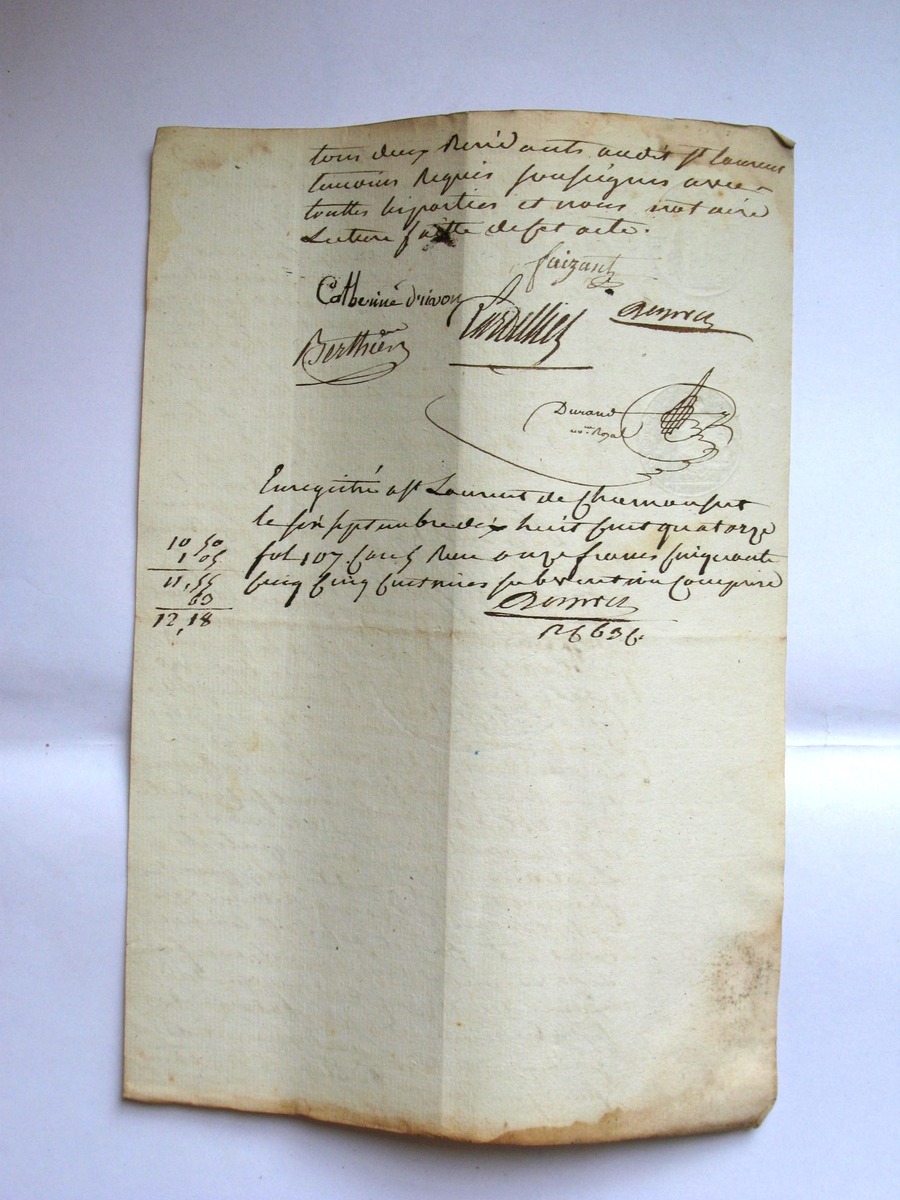 tous deux Residants audit st Laurent
temoins Requis soussignes avec
touttes les parties et nous notaire
Lecture faitte de set acte.
faizant
Catherine d'rivon
Berthier
Durand
Royal
Enregistré a st Laurent de Chamousset
le six septembre dix huit cent quatorze
fol 107 Case 5 Recu onze francs cinquante
cinq centimes subvention comprise
10 50
1 05
11,55
63
12,18